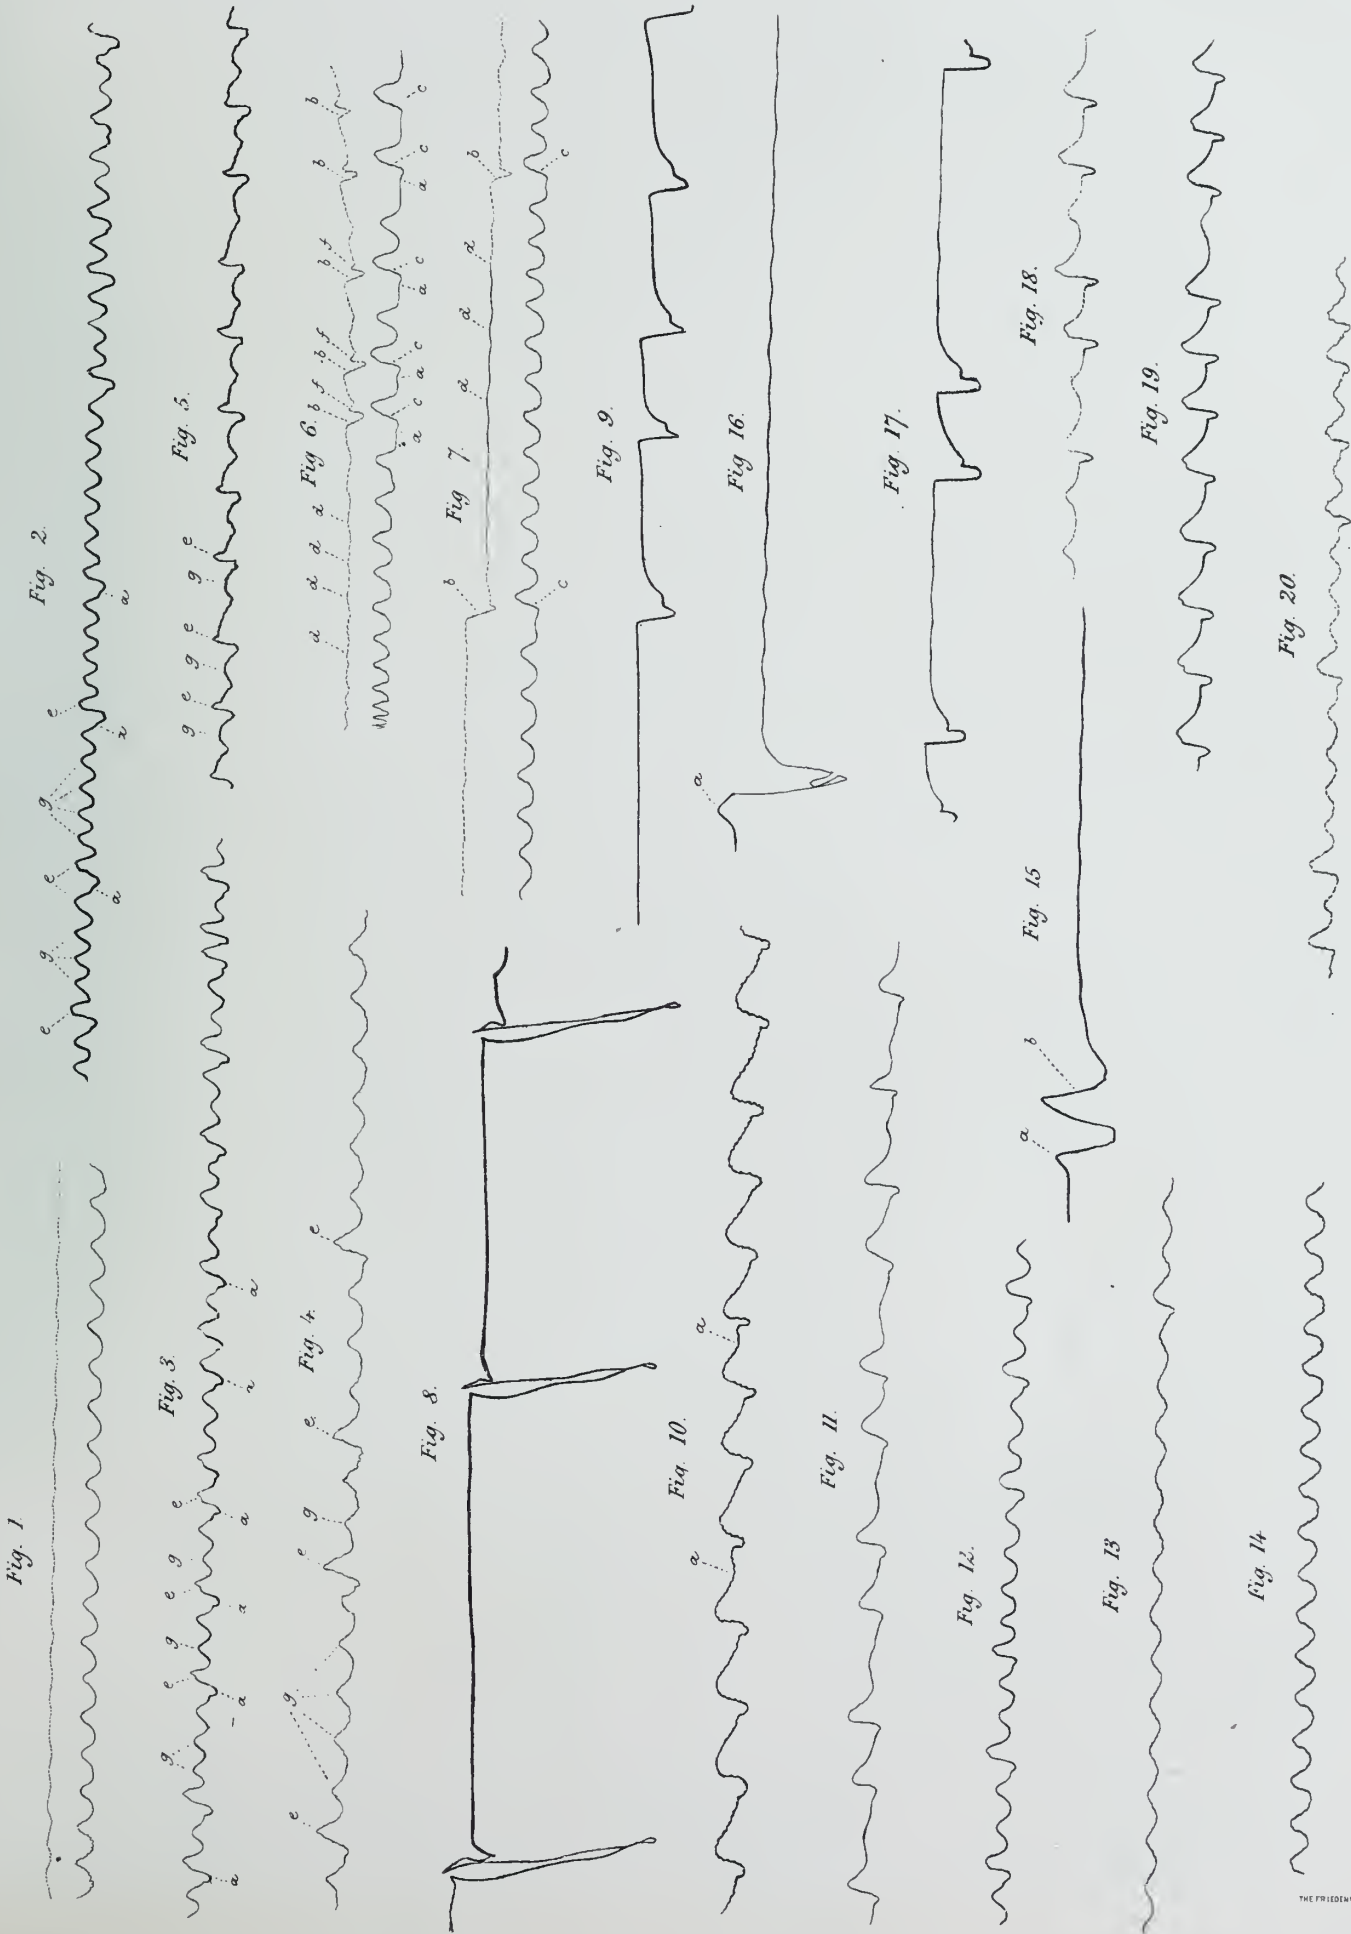 Fig. 1.
Fig. 2.
e g e g e
a a a
Fig. 3.
g e g e g e
a a a a a a
Fig. 4.
e g e g e e
Fig. 5.
g e g e g e
Fig 6.
d d d d b f b f b f b b
a c a c a c a c c
Fig 7.
b d d d b
c c
Fig. 8.
Fig. 9.
Fig. 10.
a a
Fig. 11.
Fig. 12.
Fig. 13
Fig. 14
Fig. 15
a b
Fig 16.
a
Fig. 17.
Fig. 18.
Fig. 19.
Fig. 20.
THE